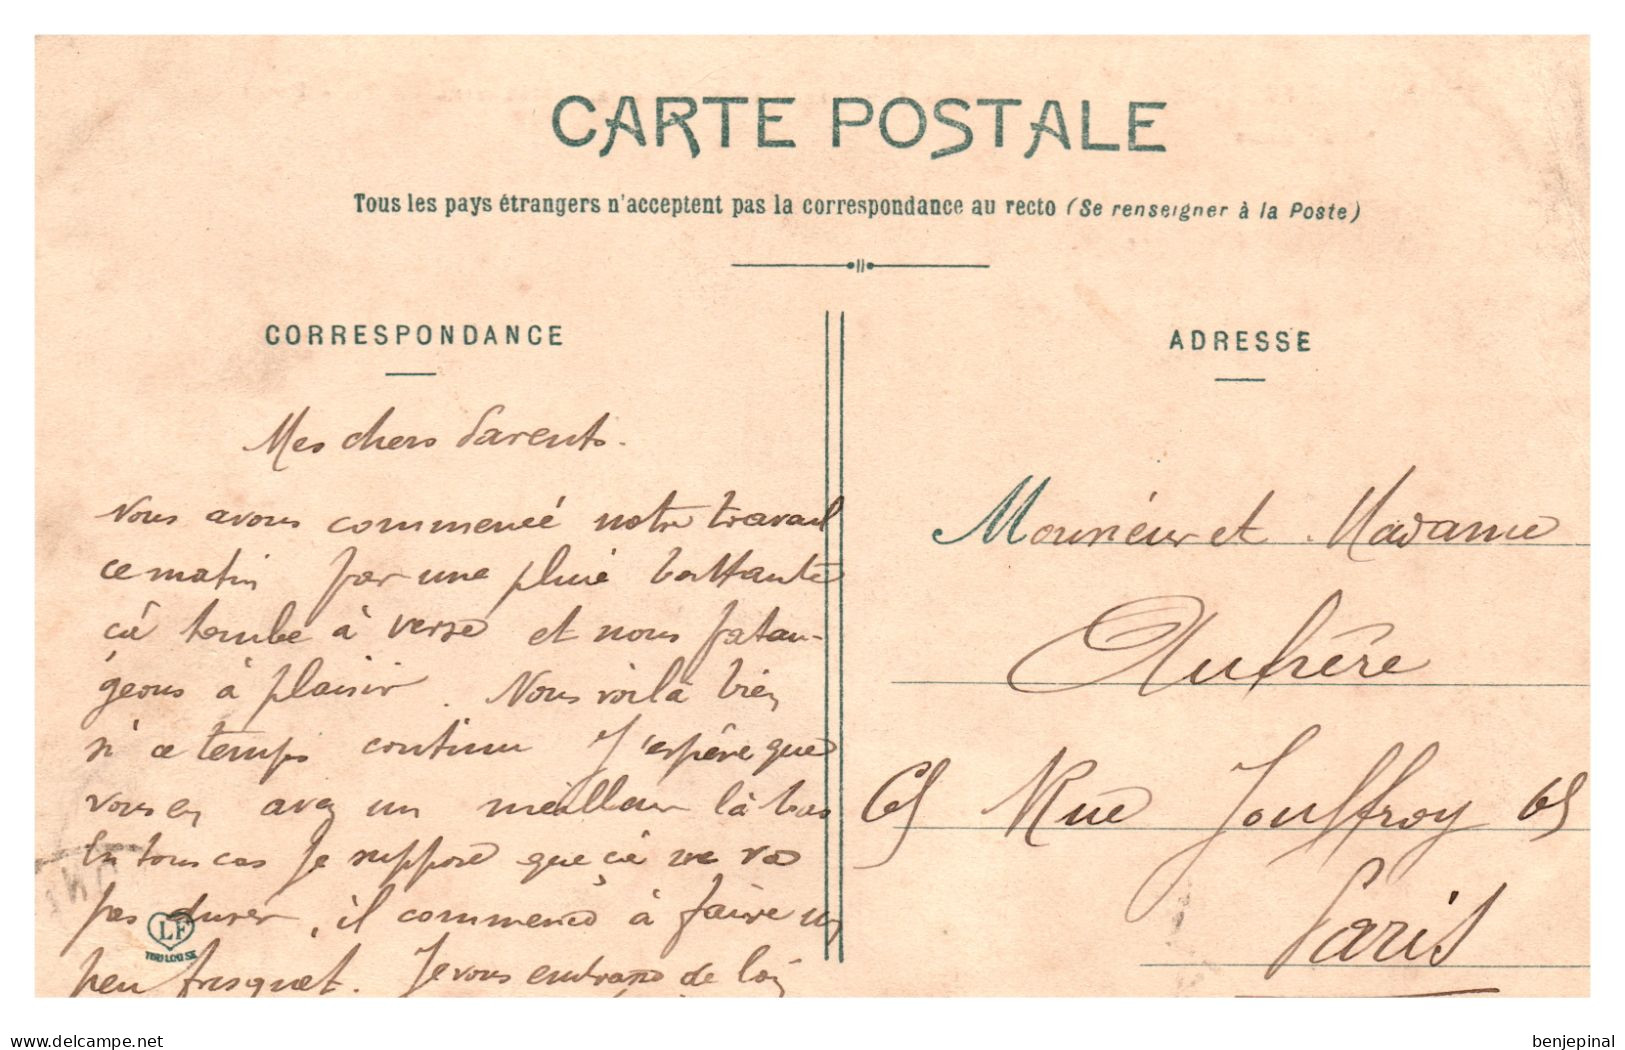 CARTE POSTALE
Tous les pays étrangers n'acceptent pas la correspondance au recto (Se renseigner à la Poste)
CORRESPONDANCE
Mes chers Parents.
Nous avons commencé notre travail
ce matin par une pluie battante
ça tombe à verse et nous patau-
geons à plaisir. Nous voilà bien
si ce temps continu J'espère que
vous en avez un meilleur là bas
En tous cas je suppose que ça ne va
pas durer, il commence à faire un
peu frisquet. Je vous embrasse de loin
LF
TOULOUSE
ADRESSE
Monsieur et Madame
65 Rue Jouffroy 65
Paris
www.delcampe.net
benjepinal